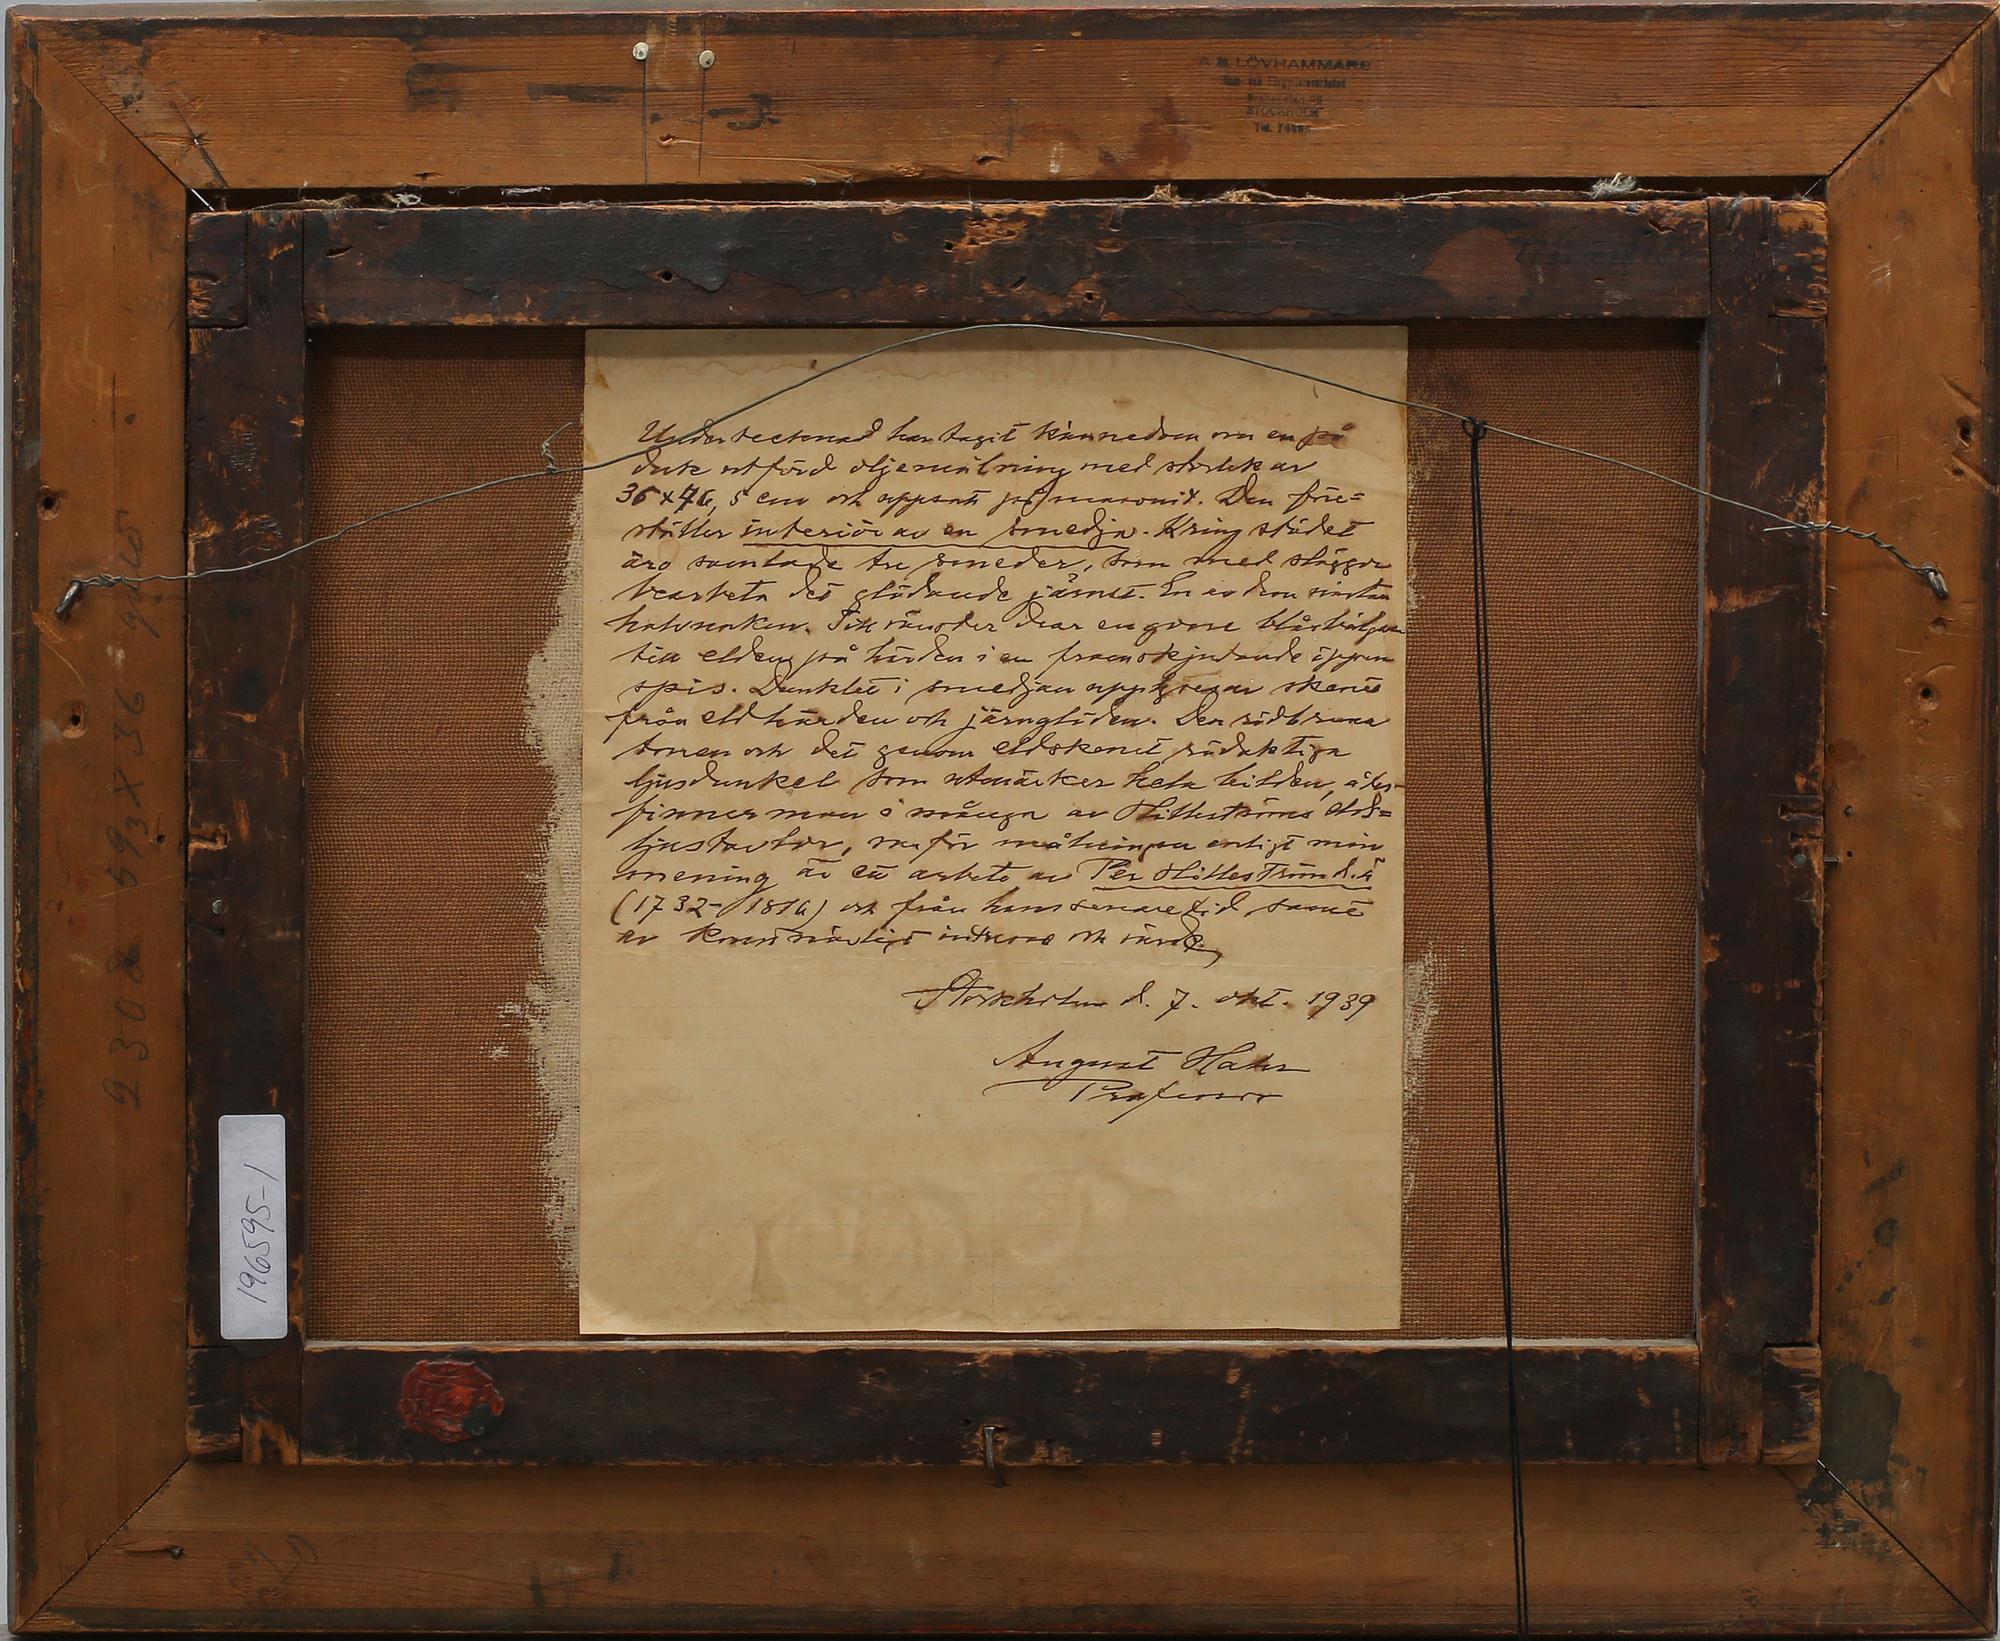 A B LÖVHAMMARS
STOCKHOLM
Tel.
Undertecknad har tagit kännedom om en på
duk utförd oljemålning med storlek av
36 x 46,5 cm och uppsatt på masonit. Den före=
ställer interiör av en smedja. Kring städet
äro samlade tre smeder, som med släggor
bearbeta det glödande järnet. En av dem nästan
halvnaken. Till vänster drar en gosse blåsbälgen
till elden på härden i en framskjutande öppen
spis. Dunklet i smedjan uppklarar skenet
från eldhärden och järnglöden. Den rödbruna
tonen och det genom eldskenet rödaktiga
ljusdunkel som utmärker hela bilden, åter-
finner man i många av Hilleströms elds=
ljustavlor, varför målningen enligt min
mening är ett arbete av Per Hilleström d.ä
(1732-1816) och från hans senare tid samt
av konstnärligt intresse och värde.
Stockholm d. 7. okt. 1939
August Hahr
Professor
2308 59 x 36
196595-1